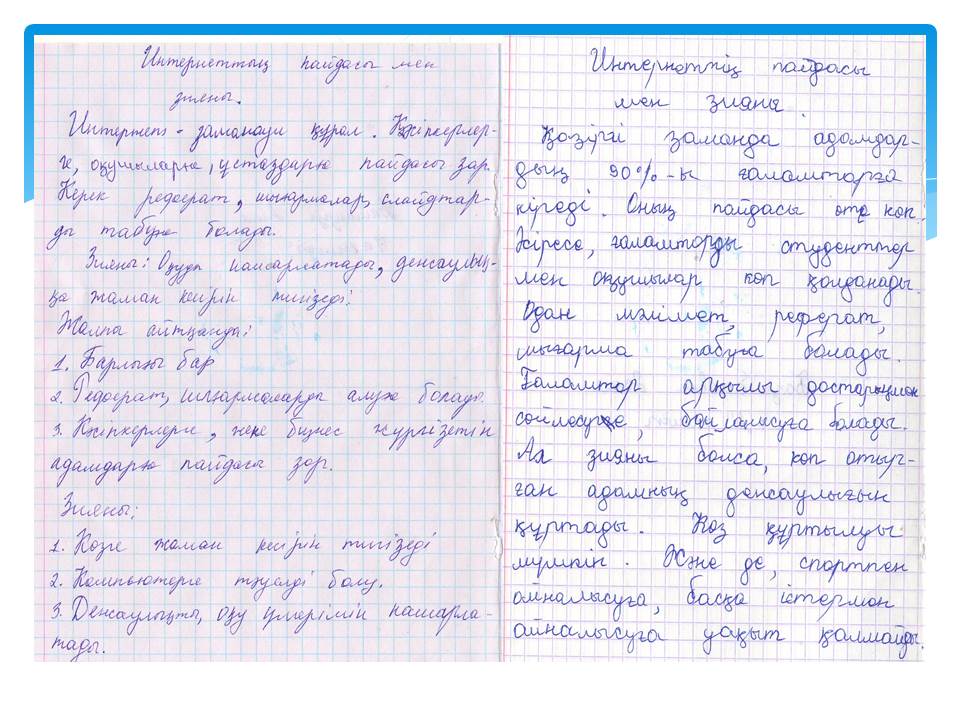 Интернеттің пайдасы мен
зияны.
Интернет - заманауи құрал. Кәсіпкерлер-
ге, оқушыларға, ұстаздарға пайдасы зор.
Керек реферат, шығармалар, слайдтар-
ды табуға болады.
Зияны: Оқуды нашарлатады, денсаулық-
қа жаман кесірін тигізеді.
Жалпы айтқанда:
1. Барлығы бар
2. Реферат, шығармаларды алуға болады.
3. Кәсіпкерлерге, жеке бизнес жүргізетін
адамдарға пайдасы зор.
Зияны:
1. Көзге жаман кесірін тигізеді
2. Компьютерге тәуелді болу.
3. Денсаулықты, оқу үлгерімін нашарла-
тады.
Интернеттің пайдасы
мен зияны.
Қазіргі заманда адамдар-
дың 90%-ы ғаламторға
кіреді. Оның пайдасы өте көп.
Әсіресе, ғаламторды студенттер
мен оқушылар көп қолданады.
Одан мәлімет, реферат,
шығарма табуға болады.
Ғаламтор арқылы достарыңмен
сөйлесуге, байланысуға болады.
Ал зияны болса, көп отыр-
ған адамның денсаулығын
құртады. Көз құртылуы
мүмкін. Және де, спортпен
айналысуға, басқа істермен
айналысуға уақыт қалмайды.